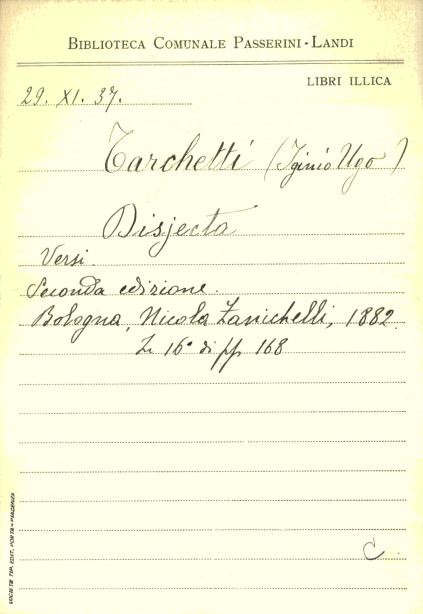 BIBLIOTECA COMUNALE PASSERINI-LANDI
LIBRI ILLICA
29. XI. 37.
Tarchetti (Iginio Ugo)
Disjecta
Versi.
Seconda edizione.
Bologna, Nicola Zanichelli, 1882.
In 16° di pp 168
C.
SOCIETÀ TIP. EDIT. PORTA - PIACENZA